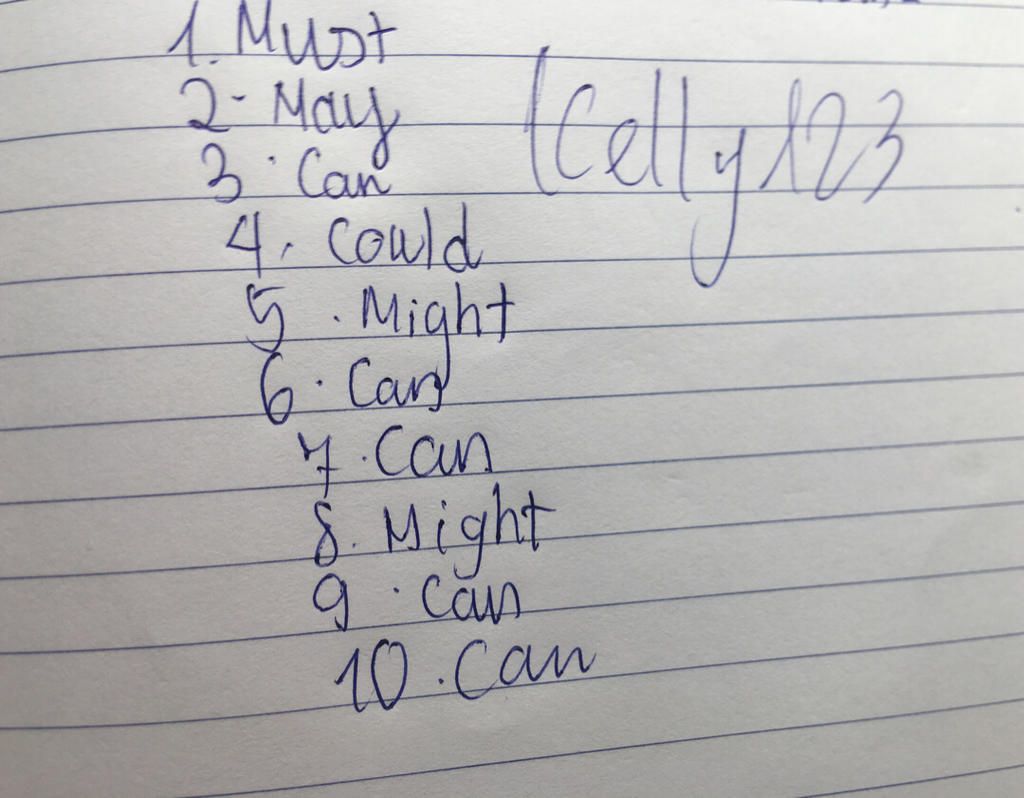 1. Must
2. May
3. Can
4. Could
5. Might
6. Can
7. Can
8. Might
9. Can
10. Can
Celly123